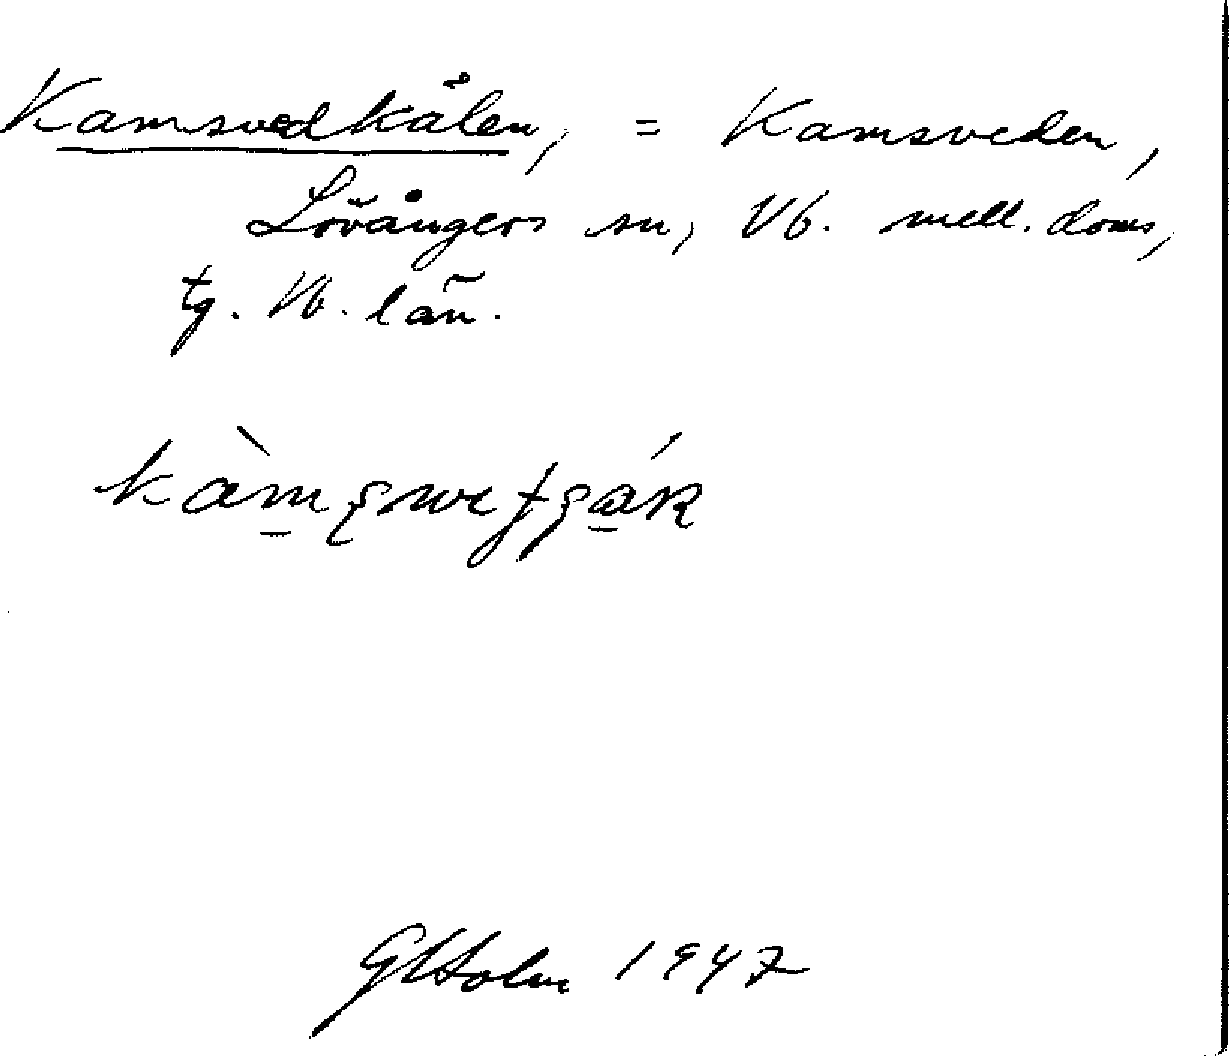 Kamsvedkålen, = Kamsveden,
Lövångers sn, Vb. mell. doms,
tg. Vb. län.
GHolm 1947